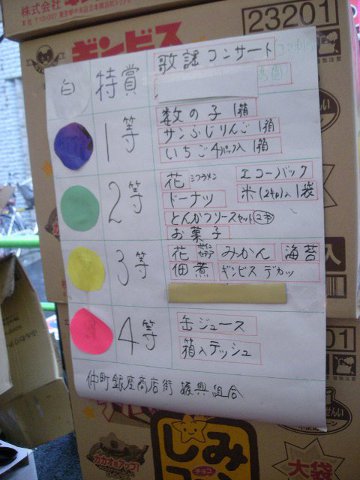 株式会社
ギンビス
23201
白 特賞 歌謡コンサート
1等 数の子 1箱
サンふじりんご 1箱
いちご4パック入 1箱
2等 花 エコーバック
ドーナツ 米(2キロ)入1袋
とんかつソースセット(2本)
お菓子
3等 花 みかん 海苔
佃煮 ギンビス デカッ
4等 缶ジュース
箱入テッシュ
仲町銀座商店街 振興組合
しみ
大袋